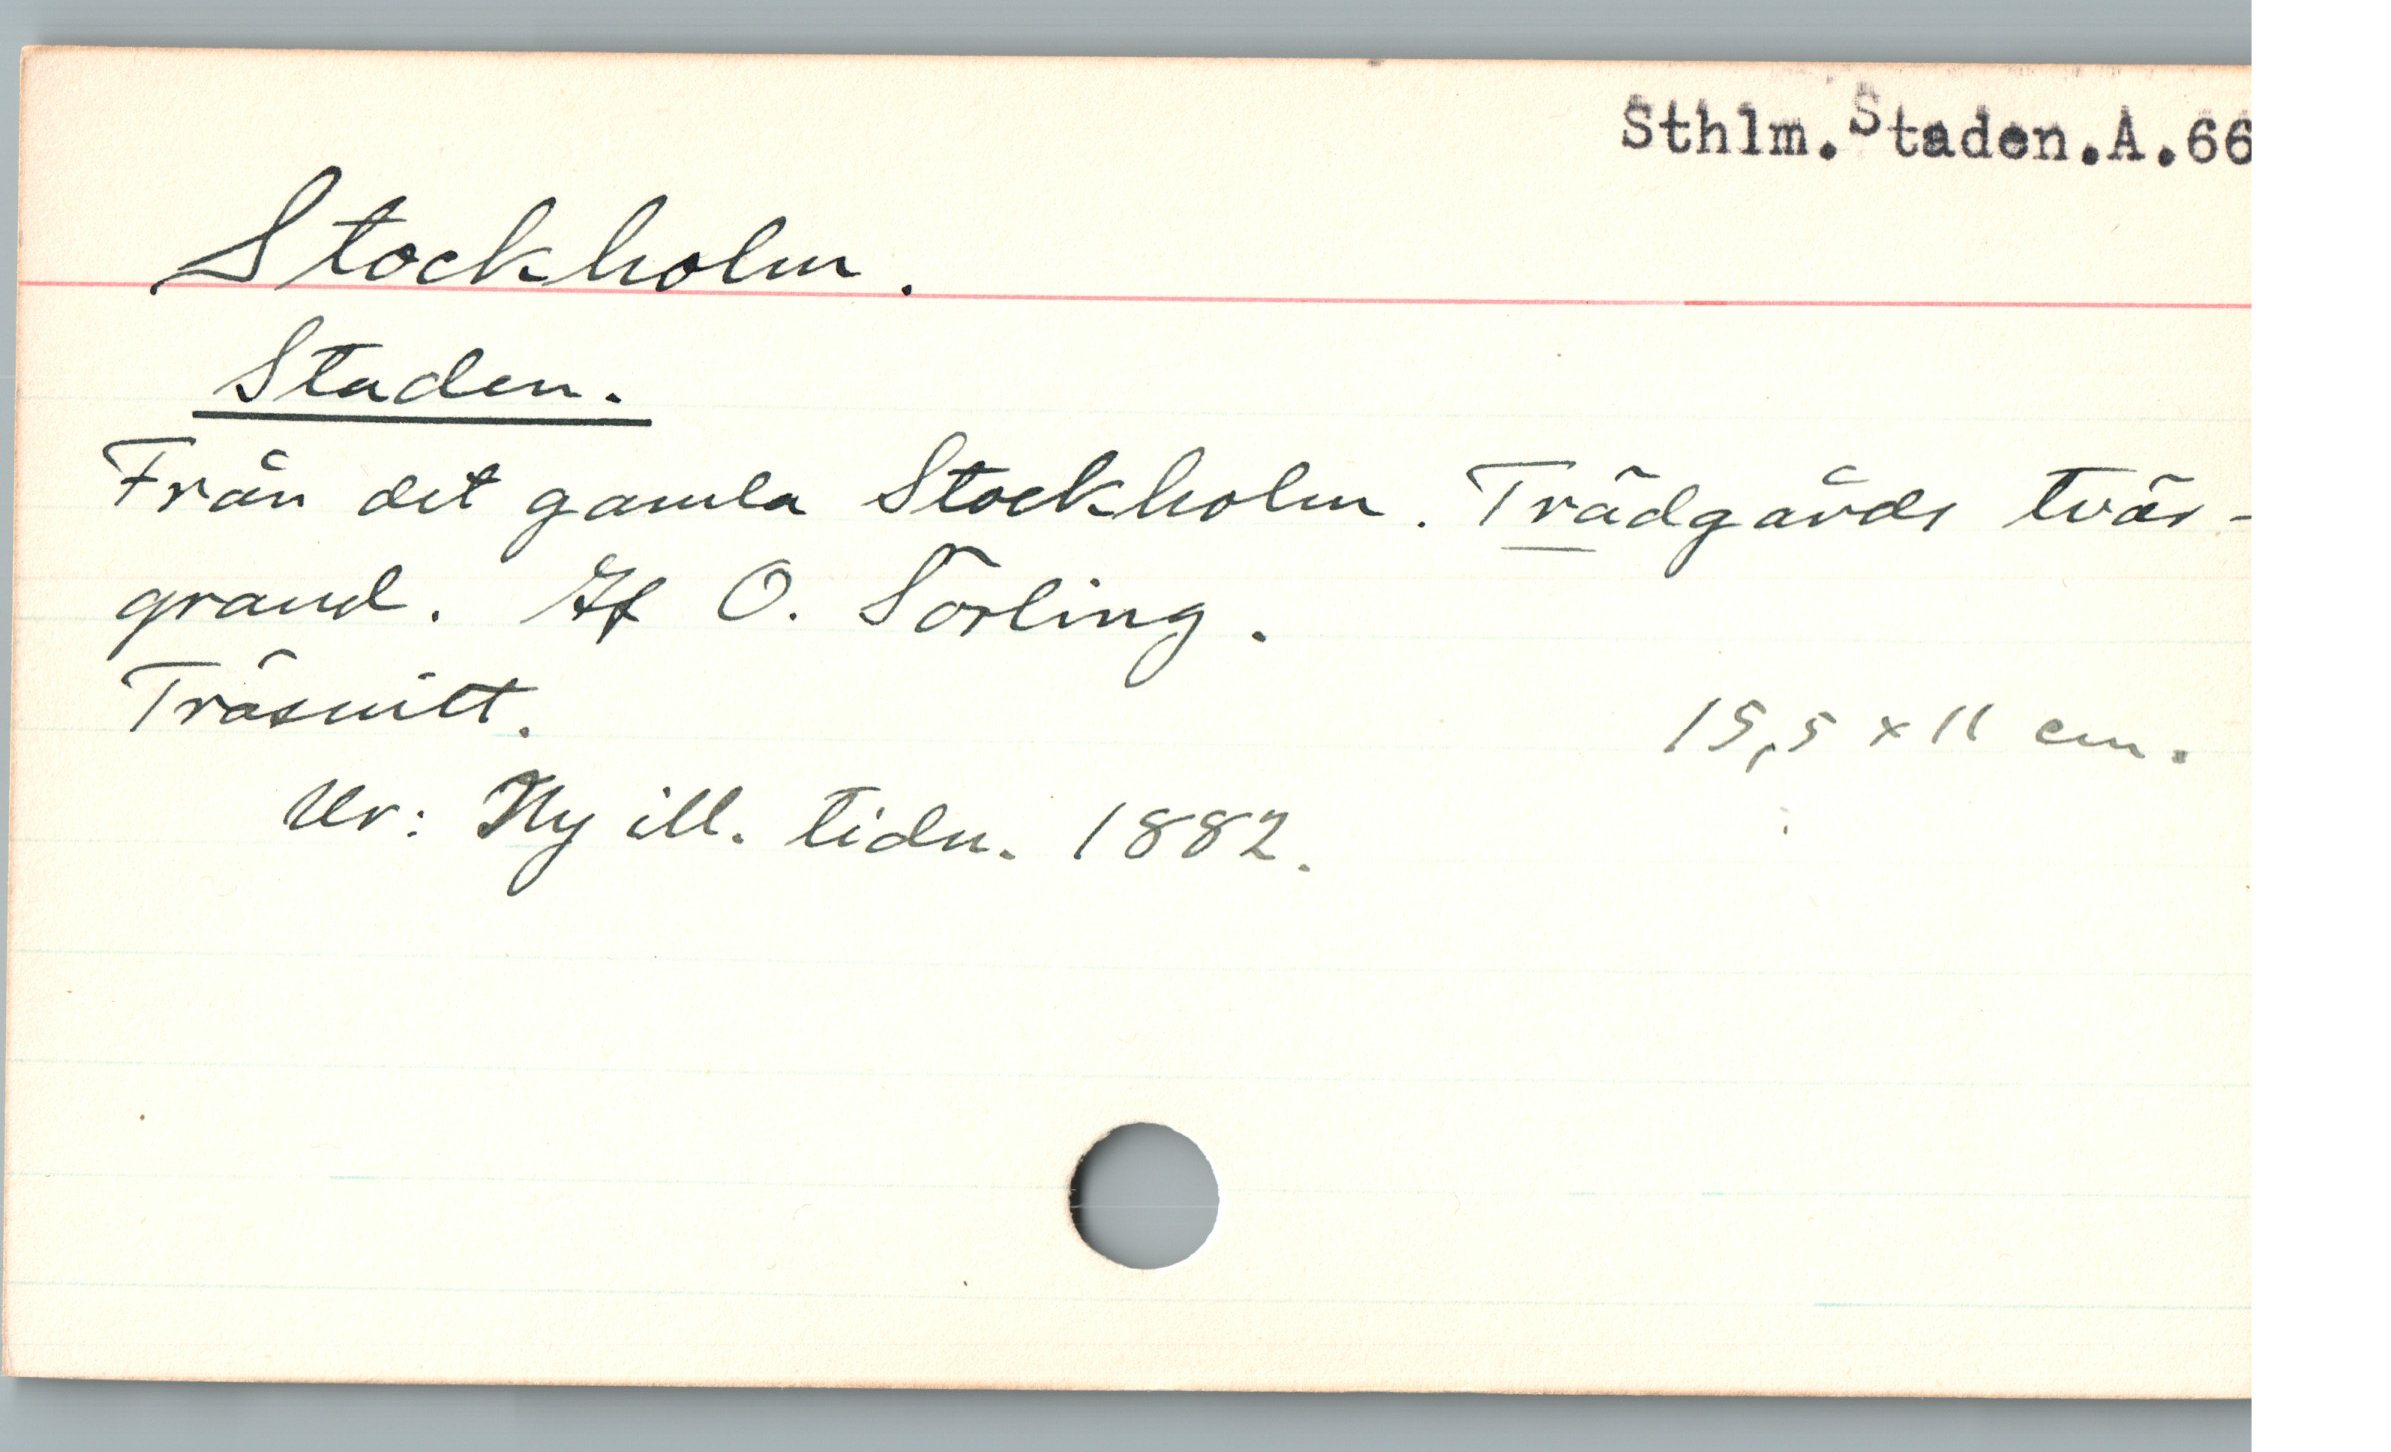 Sthlm.Staden.A.66
Stockholm.
Staden.
Från det gamla Stockholm. Trädgårds tvär-
gränd. Af O. Sörling.
Träsnitt.
15,5 x 11 cm.
Ur: Ny ill. tidn. 1882.